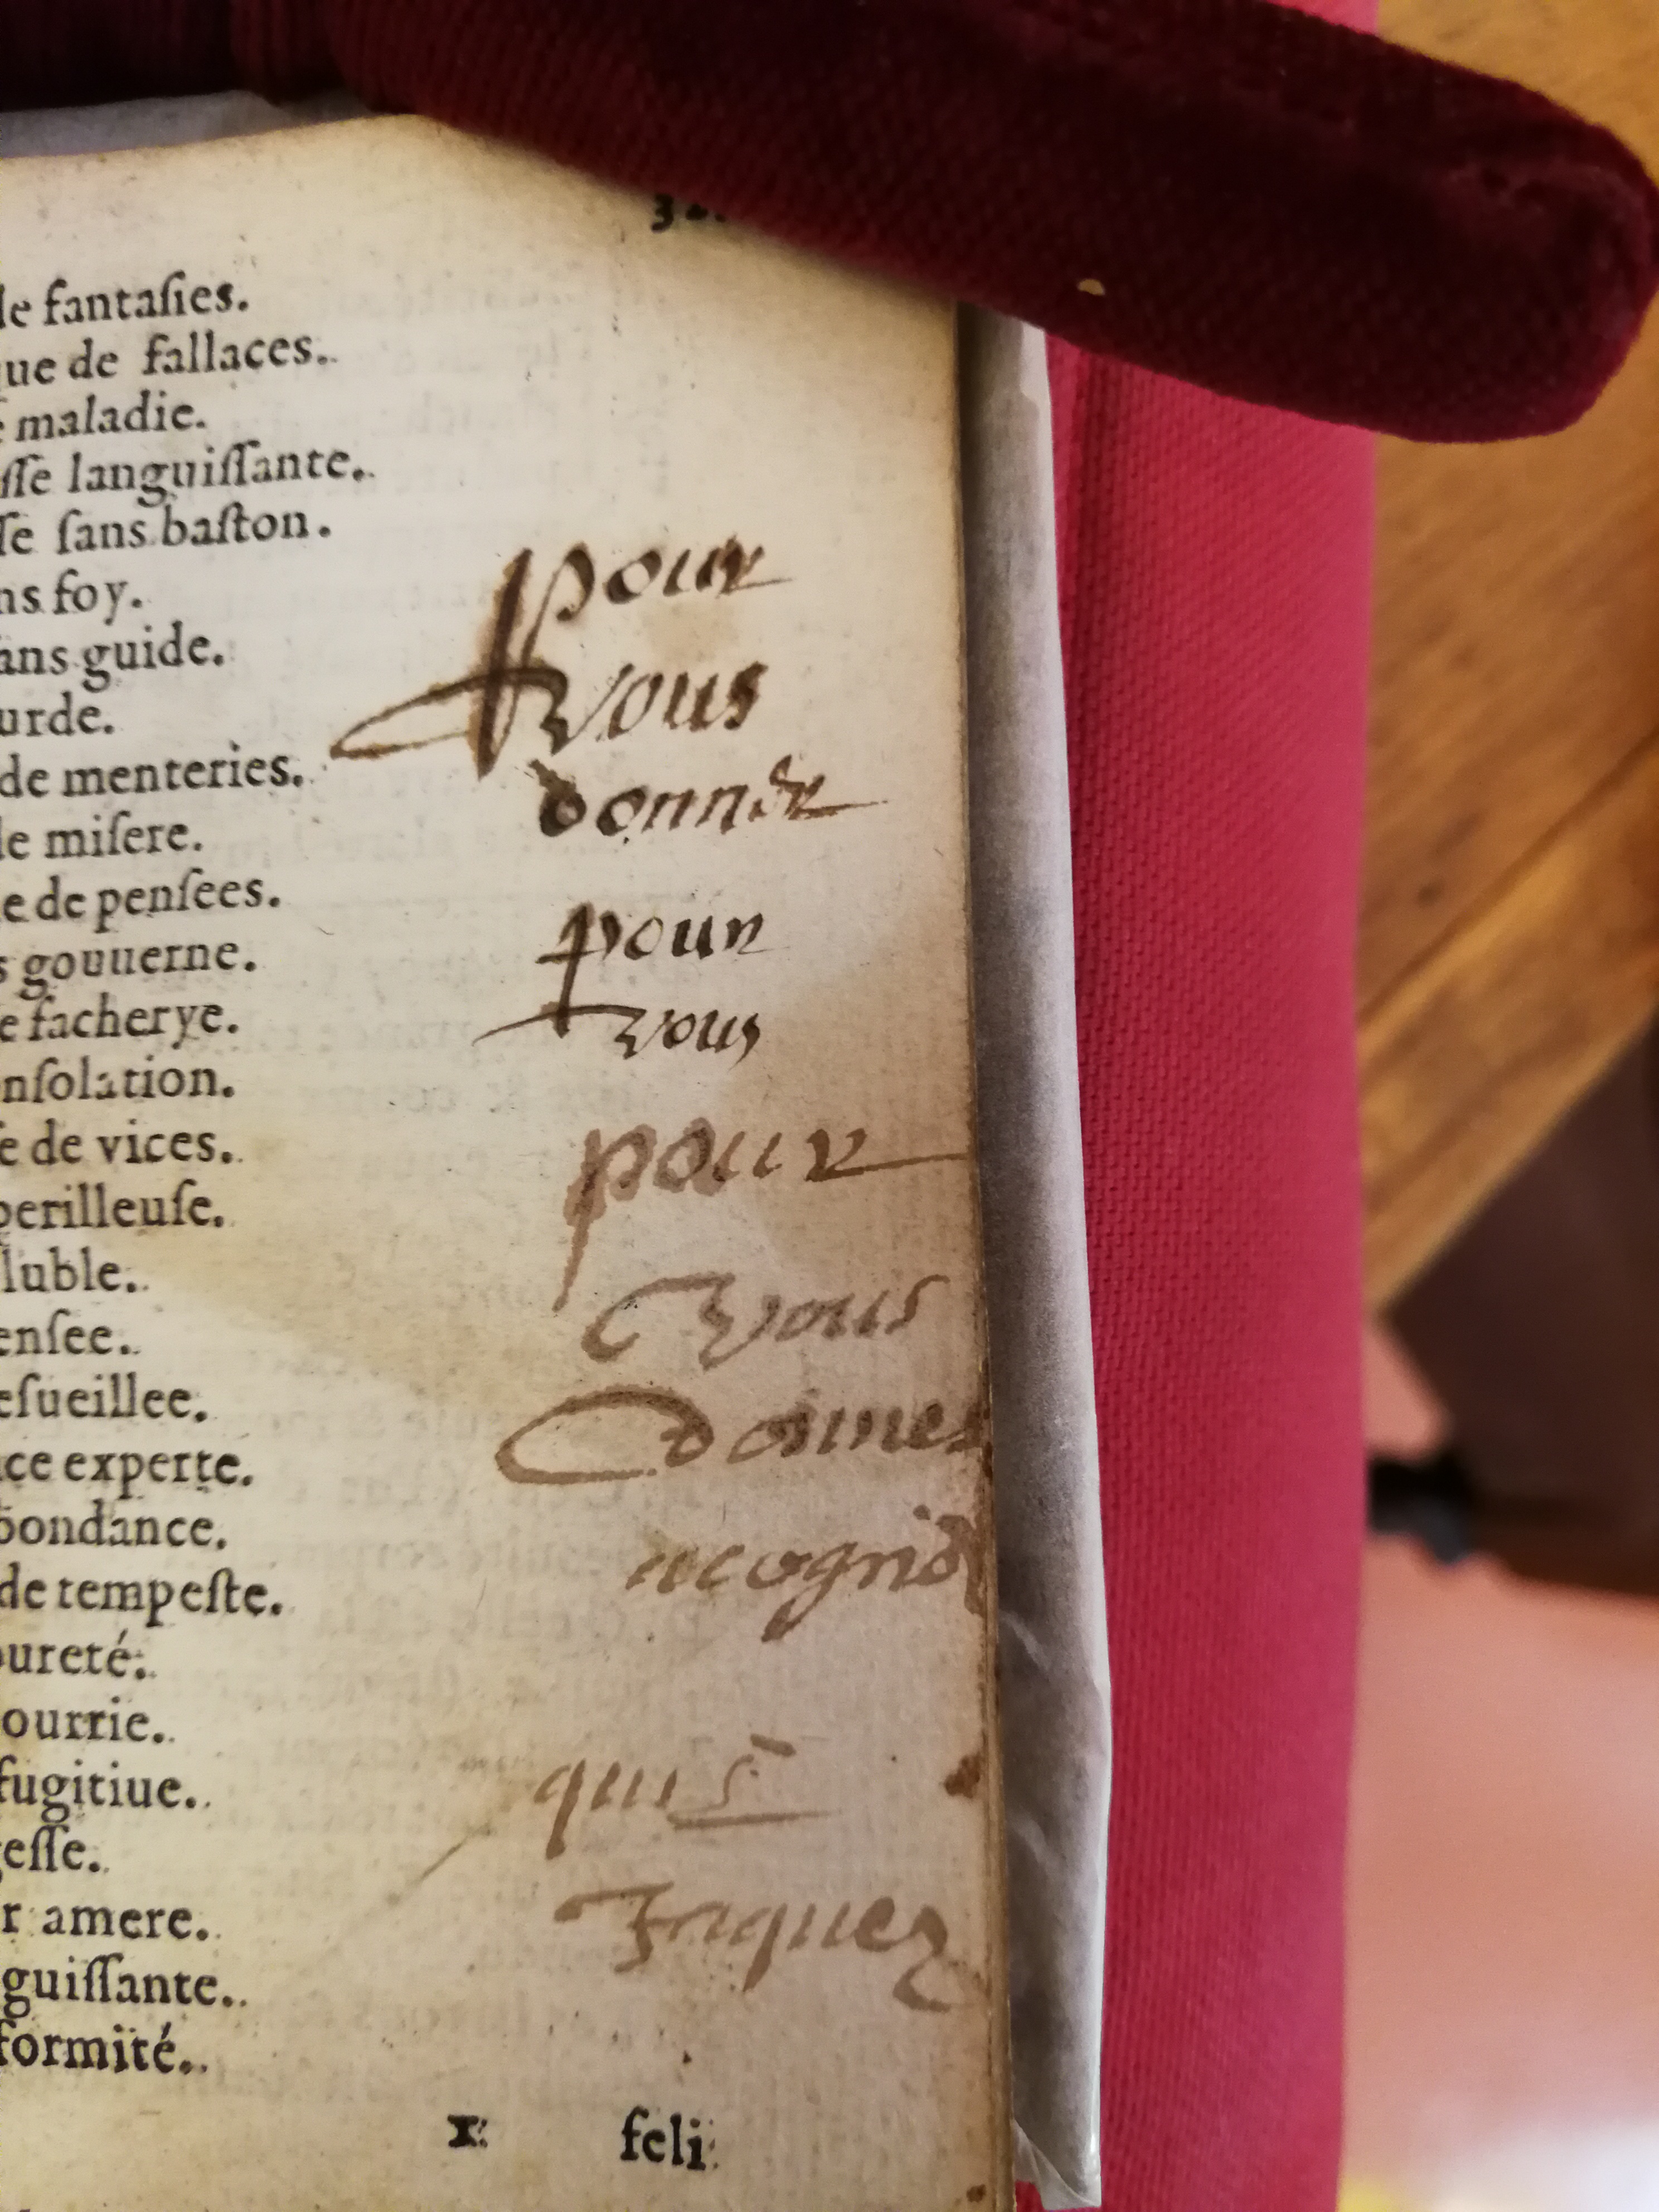 le fantaſies.
que de fallaces.
maladie.
ſſe languiſſante.
ſe ſans baſton.
ns foy.
pour
ans guide.
vous
urde.
de menteries.
donner
de miſere.
e de penſees.
pour
s gouuerne.
e facherye.
vous
nſolation.
ſe de vices.
pour
perilleuſe.
luble.
vous
enſee.
eſueillee.
donner
ce experte.
bondance.
acognoi
de tempeſte.
pureté.
ourrie.
qui
fugitiue.
geſſe.
r amere.
Jaquez
guiſſante.
formité.
x feli